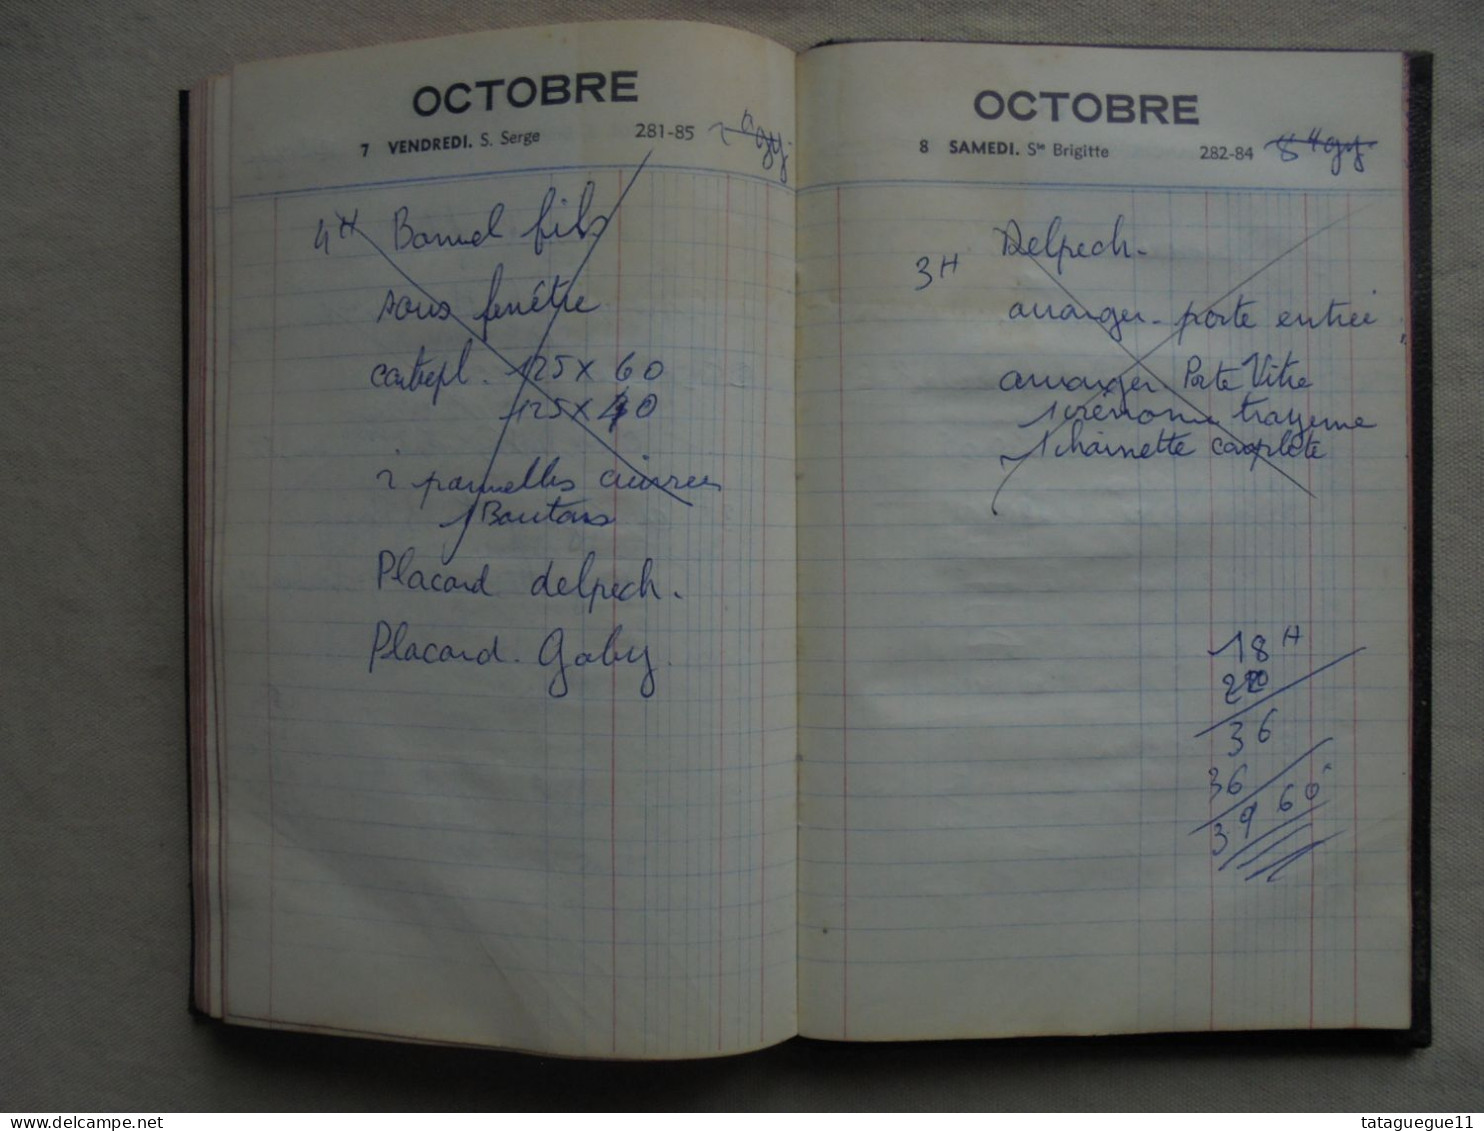 OCTOBRE
7 VENDREDI. S. Serge 281-85
4 H Bonnel fils
sous fenêtre
contrepl. 125 x 60
125 x 40
2 paumelles cuivrees
1 Boutons
Placard delpech.
Placard. Gaby.
OCTOBRE
8 SAMEDI. Ste Brigitte 282-84
Delpech.
3 H
arranger. porte entrée
arranger. Porte Vitre
1 crémone
1 chainette complète
18 H
220
36
36
3960
delcampe.net
tatague​gue11